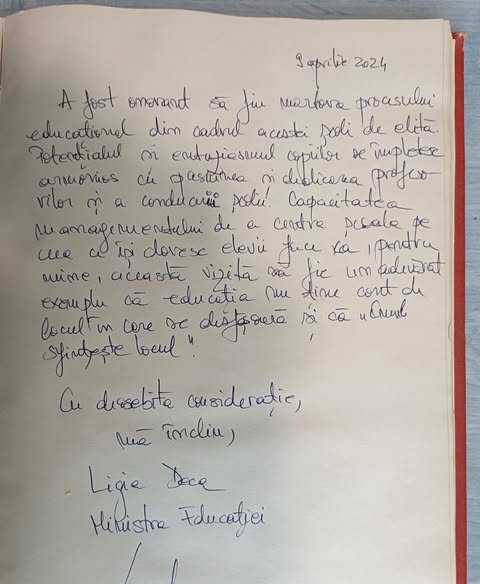 9 aprilie 2024
A fost onorant să fiu martora procesului
educațional din cadrul acestei școli de elită.
Potențialul și entuziasmul copiilor se împletesc
armonios cu pasiunea și dedicarea profeso-
rilor și a conducerii școlii! Capacitatea
managementului de a centra școala pe
ceea ce își doresc elevii face ca, pentru
mine, această vizită să fie un adevărat
exemplu că educația nu ține cont de
locul în care se desfășoară și că "Omul
sfințește locul".
Cu deosebită considerație,
mă înclin,
Ligia Deca
Ministra Educației